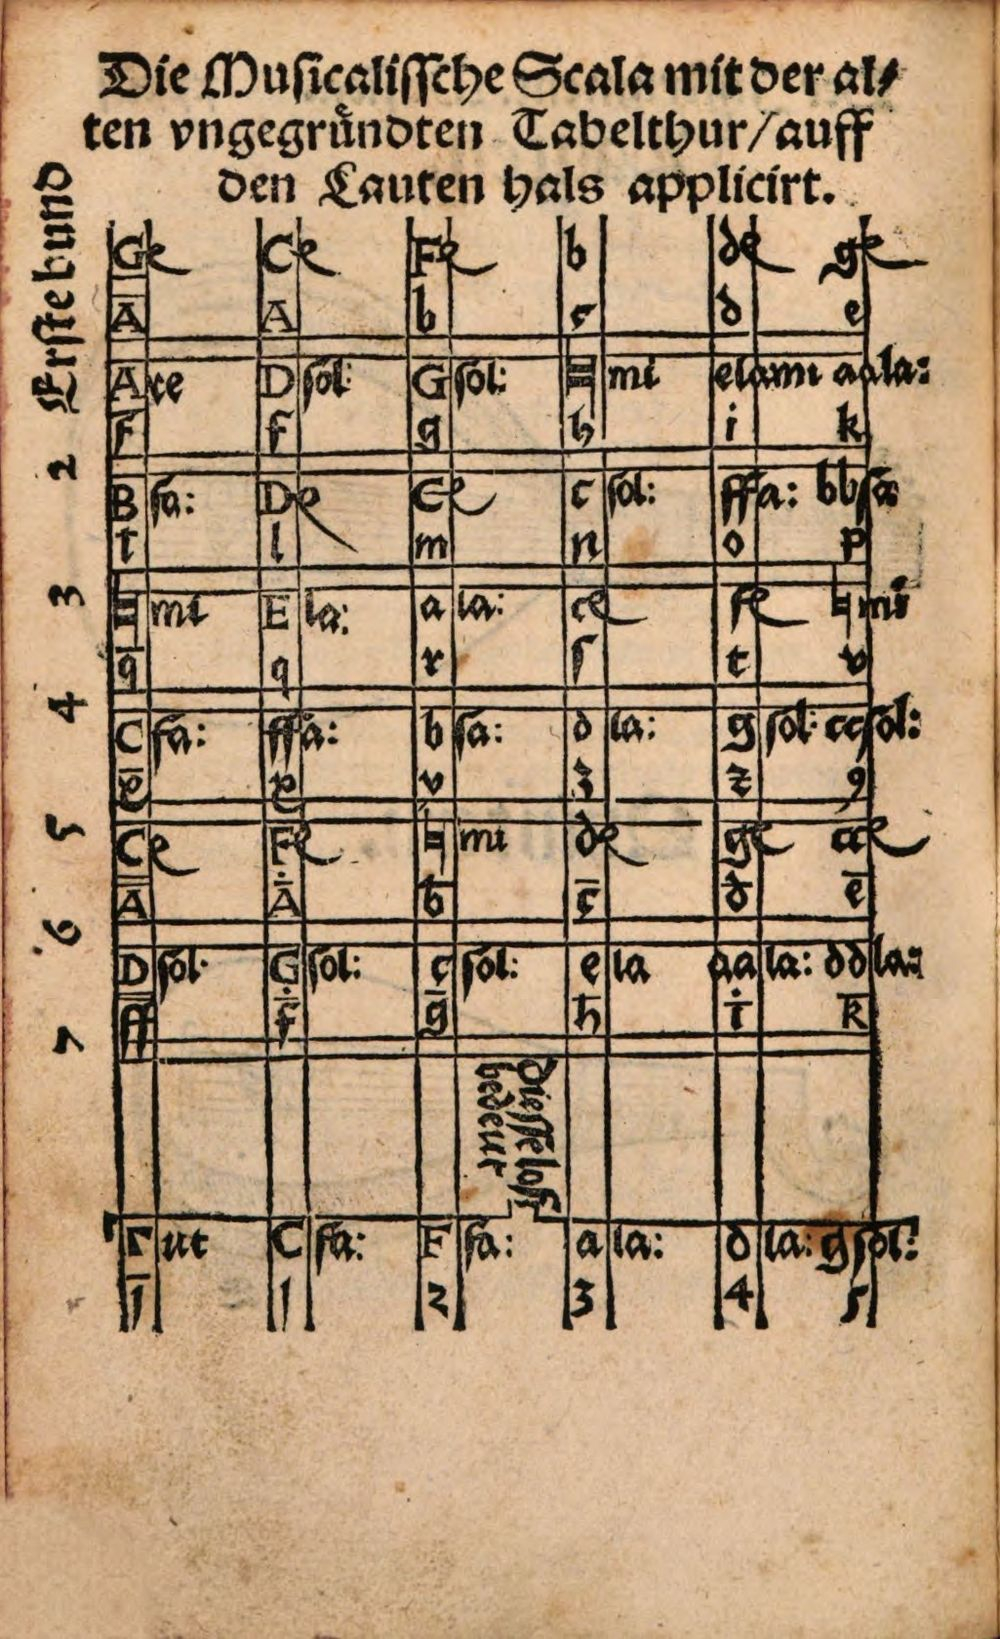 Die Musicalissche Scala mit der al⸗
ten vngegruͤndten Tabelthur/auff
den Lauten hals applicirt.
Erste bund
G C F b d g
A A b c d e
A re D sol: G sol: ♮ mi elami aala:
F f g h i k
2
B fa: D E c sol: ffa: bbfa
t l m n o p
3
♮ mi E la: a la: c f ♮mi
q q r ſ t v
4
C fa: ffa: b fa: d la: g sol: ccsol:
x x v z ꝫ 9
5
C F ♮ mi d g a
A A b c d e
6
D sol: G sol: c sol: e la aa la: dd la:
ff f g h i k
7
Diesse los
bedeut
Γ ut C fa: F fa: a la: d la: g sol:
1 1 2 3 4 5